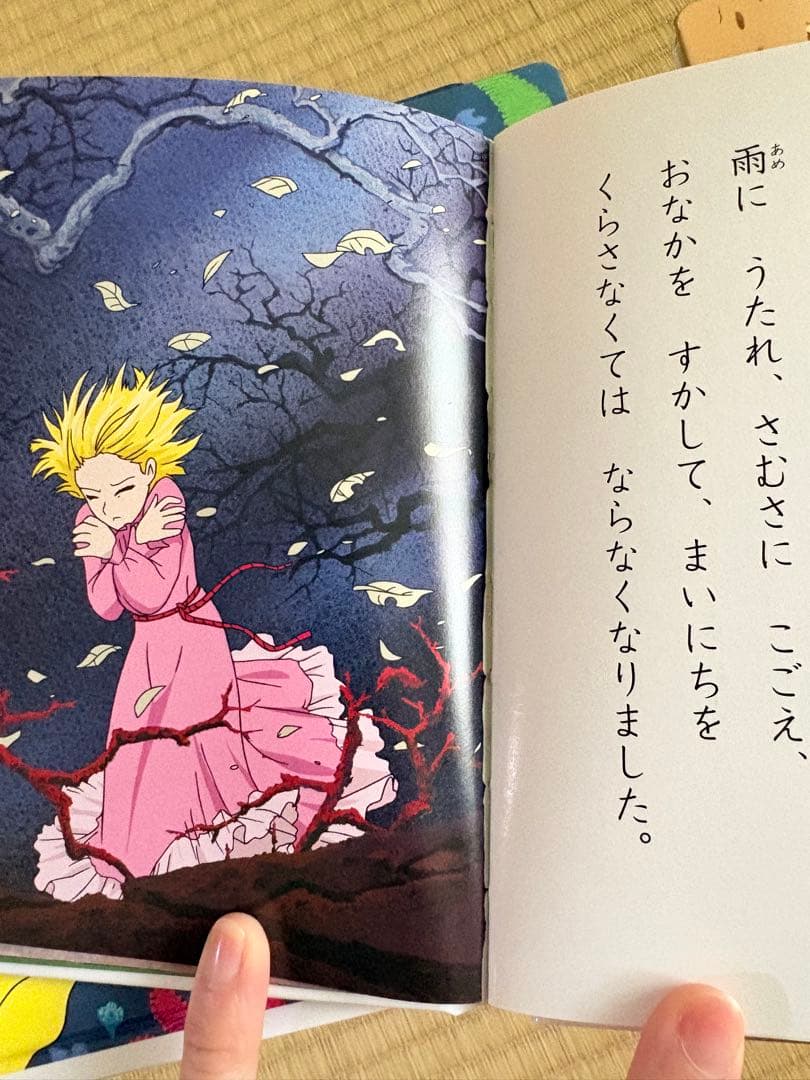 雨に うたれ、さむさに こごえ、
おなかを すかして、まいにちを
くらさなくては ならなくなりました。
あめ